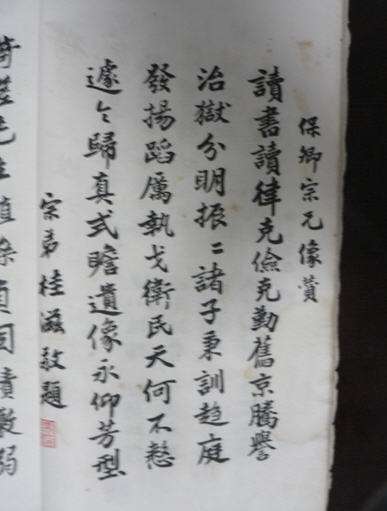 保卿宗兄像贊
讀書讀律克儉克勤舊京騰譽
治獄分明振〻諸子秉訓趨庭
發揚蹈厲執戈衛民天何不憖
遽〻歸真式瞻遺像永仰芳型
宗弟桂滋敬題